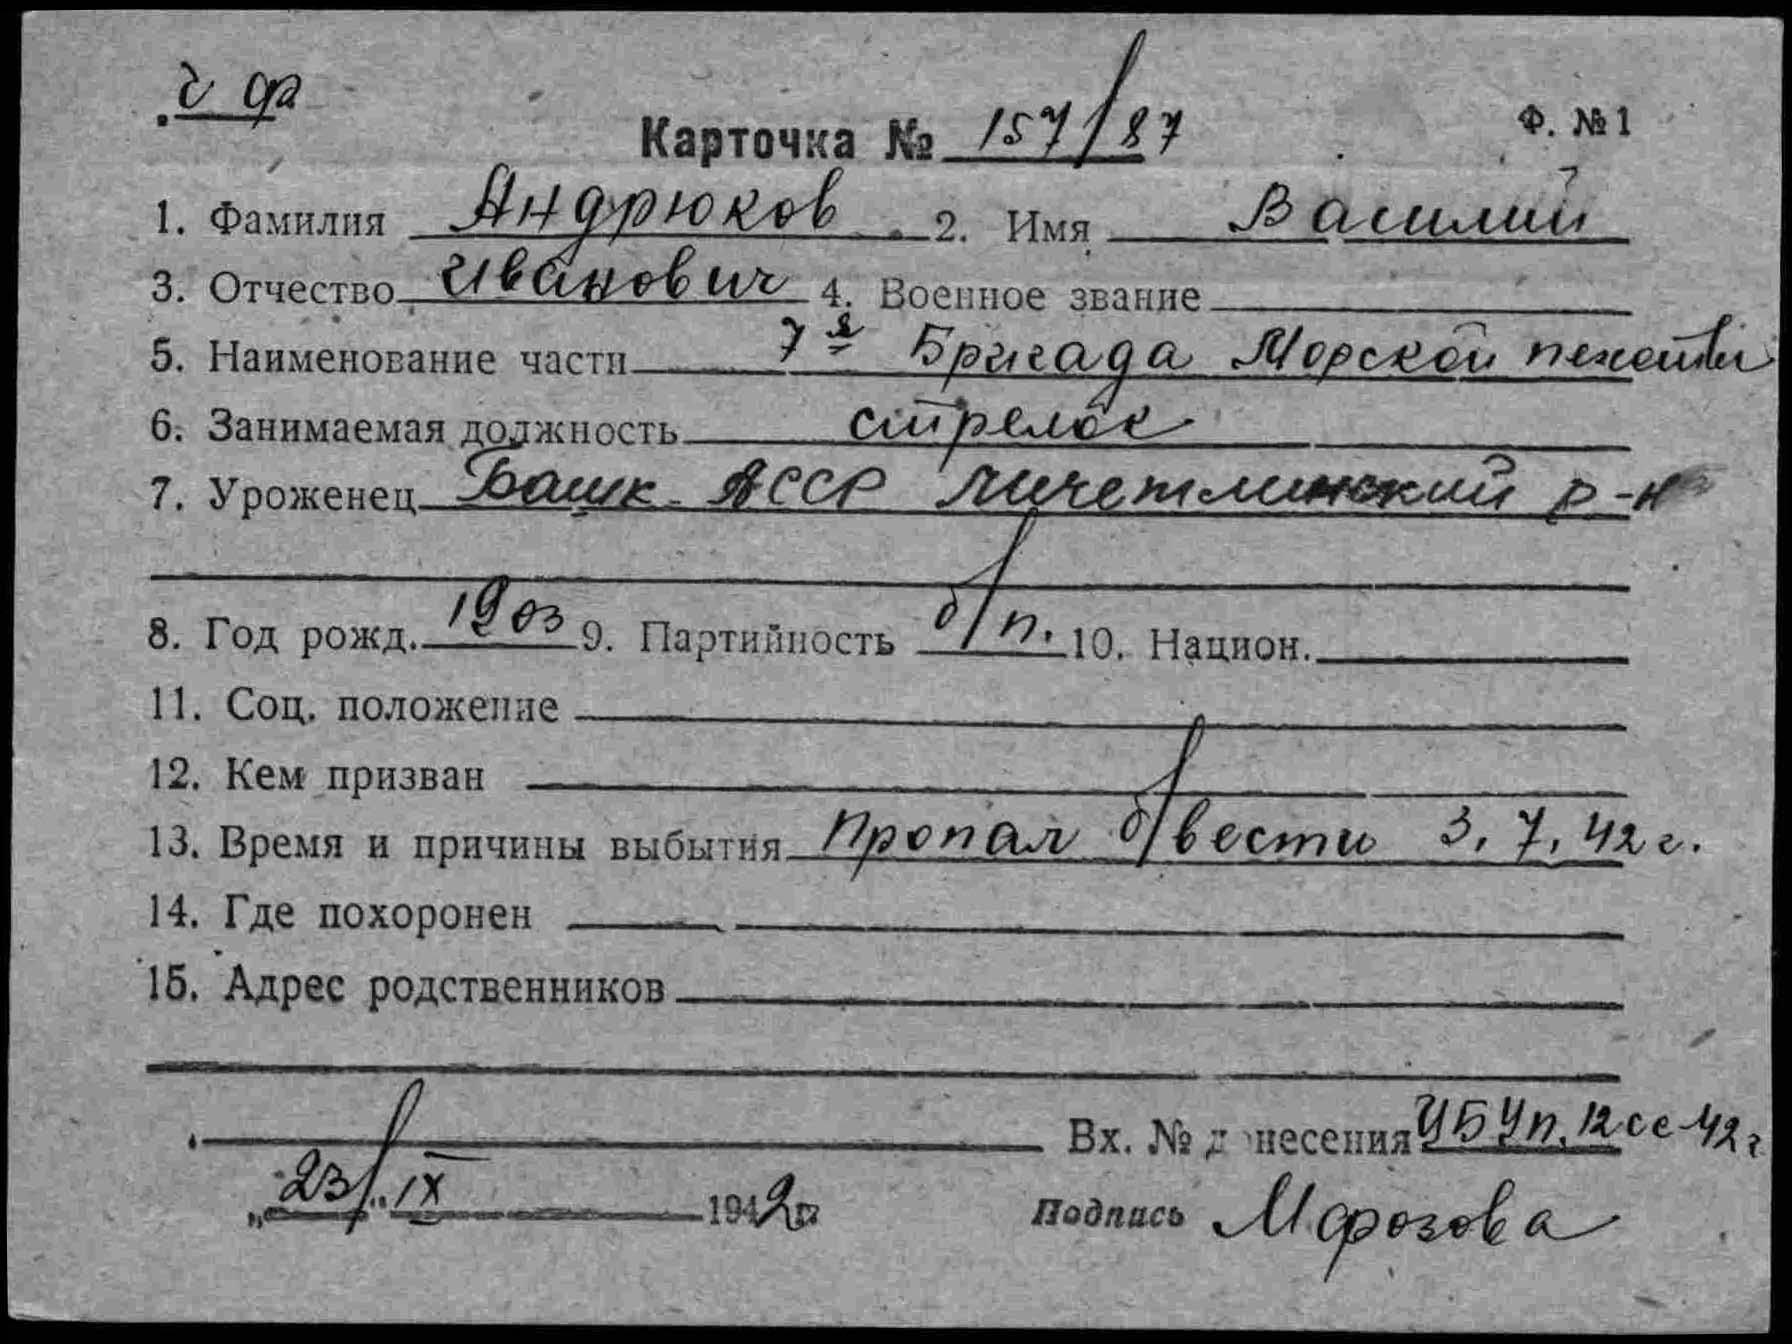 ч ф
Карточка № 157/87 Ф. №1
1. Фамилия Андрюков 2. Имя Василий
3. Отчество Иванович 4. Военное звание
5. Наименование части 7я Бригада Морской пехоты
6. Занимаемая должность стрелок
7. Уроженец Башк. АССР Мичетлинский р-н
8. Год рожд. 1903 9. Партийность б/п. 10. Национ.
11. Соц. положение
12. Кем призван
13. Время и причины выбытия Пропал б/вести 3.7.42 г.
14. Где похоронен
15. Адрес родственников
Вх. № донесения УБУп. 12сс-42г
„23" IX 1942г
Подпись Морозова